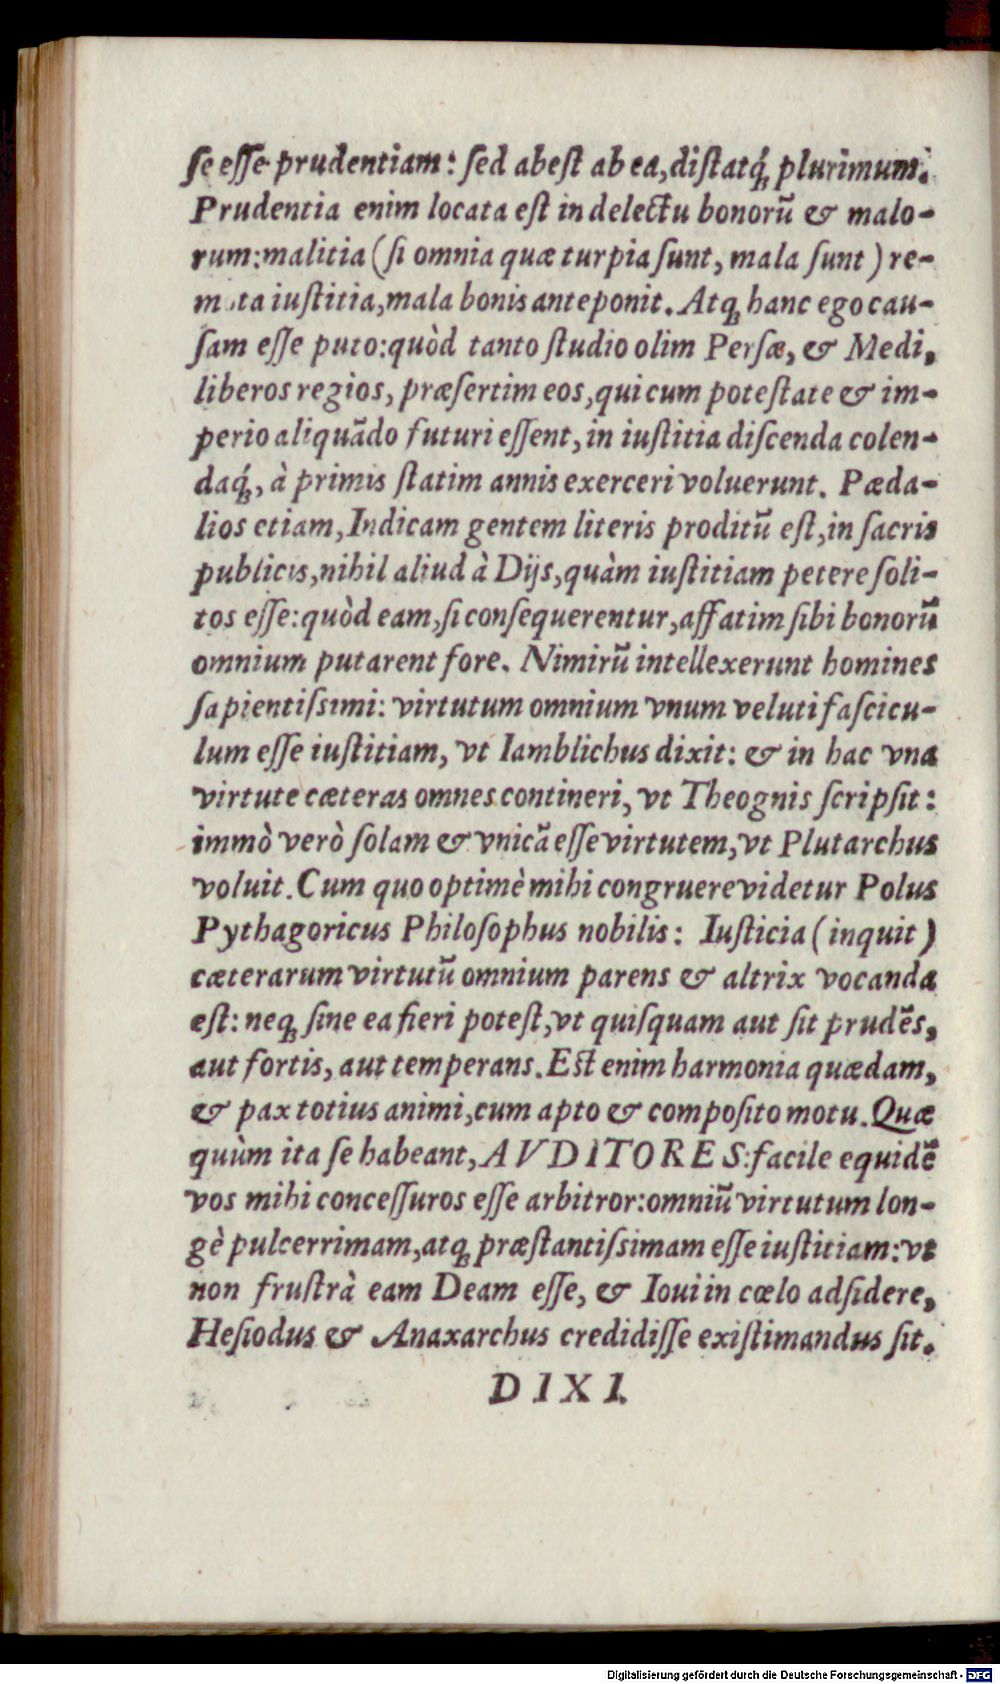 ſe eſſe prudentiam: ſed abeſt ab ea, diſtatq́; plurimum.
Prudentia enim locata eſt in delectu bonorũ & malo-
rum: malitia (ſi omnia quæ turpia ſunt, mala ſunt) re-
mota iuſtitia, mala bonis anteponit. Atq; hanc ego cau-
ſam eſſe puto: quòd tanto ſtudio olim Perſæ, & Medi,
liberos regios, præſertim eos, qui cum poteſtate & im-
perio aliquãdo futuri eſſent, in iuſtitia diſcenda colen-
daq́;, à primis ſtatim annis exerceri voluerunt. Pæda-
lios etiam, Indicam gentem literis proditũ eſt, in ſacris
publicis, nihil aliud à Dijs, quàm iuſtitiam petere ſoli-
tos eſſe: quòd eam, ſi conſequerentur, affatim ſibi bonorũ
omnium putarent fore. Nimirũ intellexerunt homines
ſapientiſsimi: virtutum omnium vnum veluti faſcicu-
lum eſſe iuſtitiam, vt Iamblichus dixit: & in hac vna
virtute cæteras omnes contineri, vt Theognis ſcripſit:
immò verò ſolam & vnicã eſſe virtutem, vt Plutarchus
voluit. Cum quo optimè mihi congruere videtur Polus
Pythagoricus Philoſophus nobilis: Iuſticia (inquit)
cæterarum virtutũ omnium parens & altrix vocanda
eſt: neq; ſine ea fieri poteſt, vt quiſquam aut ſit prudẽs,
aut fortis, aut temperans. Eſt enim harmonia quædam,
& pax totius animi, cum apto & compoſito motu. Quæ
quùm ita ſe habeant, AVDITORES: facile equidẽ
vos mihi conceſſuros eſſe arbitror: omniũ virtutum lon-
gè pulcerrimam, atq; præſtantiſsimam eſſe iuſtitiam: vt
non fruſtrà eam Deam eſſe, & Ioui in cœlo adſidere,
Heſiodus & Anaxarchus credidiſſe exiſtimandus ſit.
DIXI.
Digitalisierung gefördert durch die Deutsche Forschungsgemeinschaft - DFG